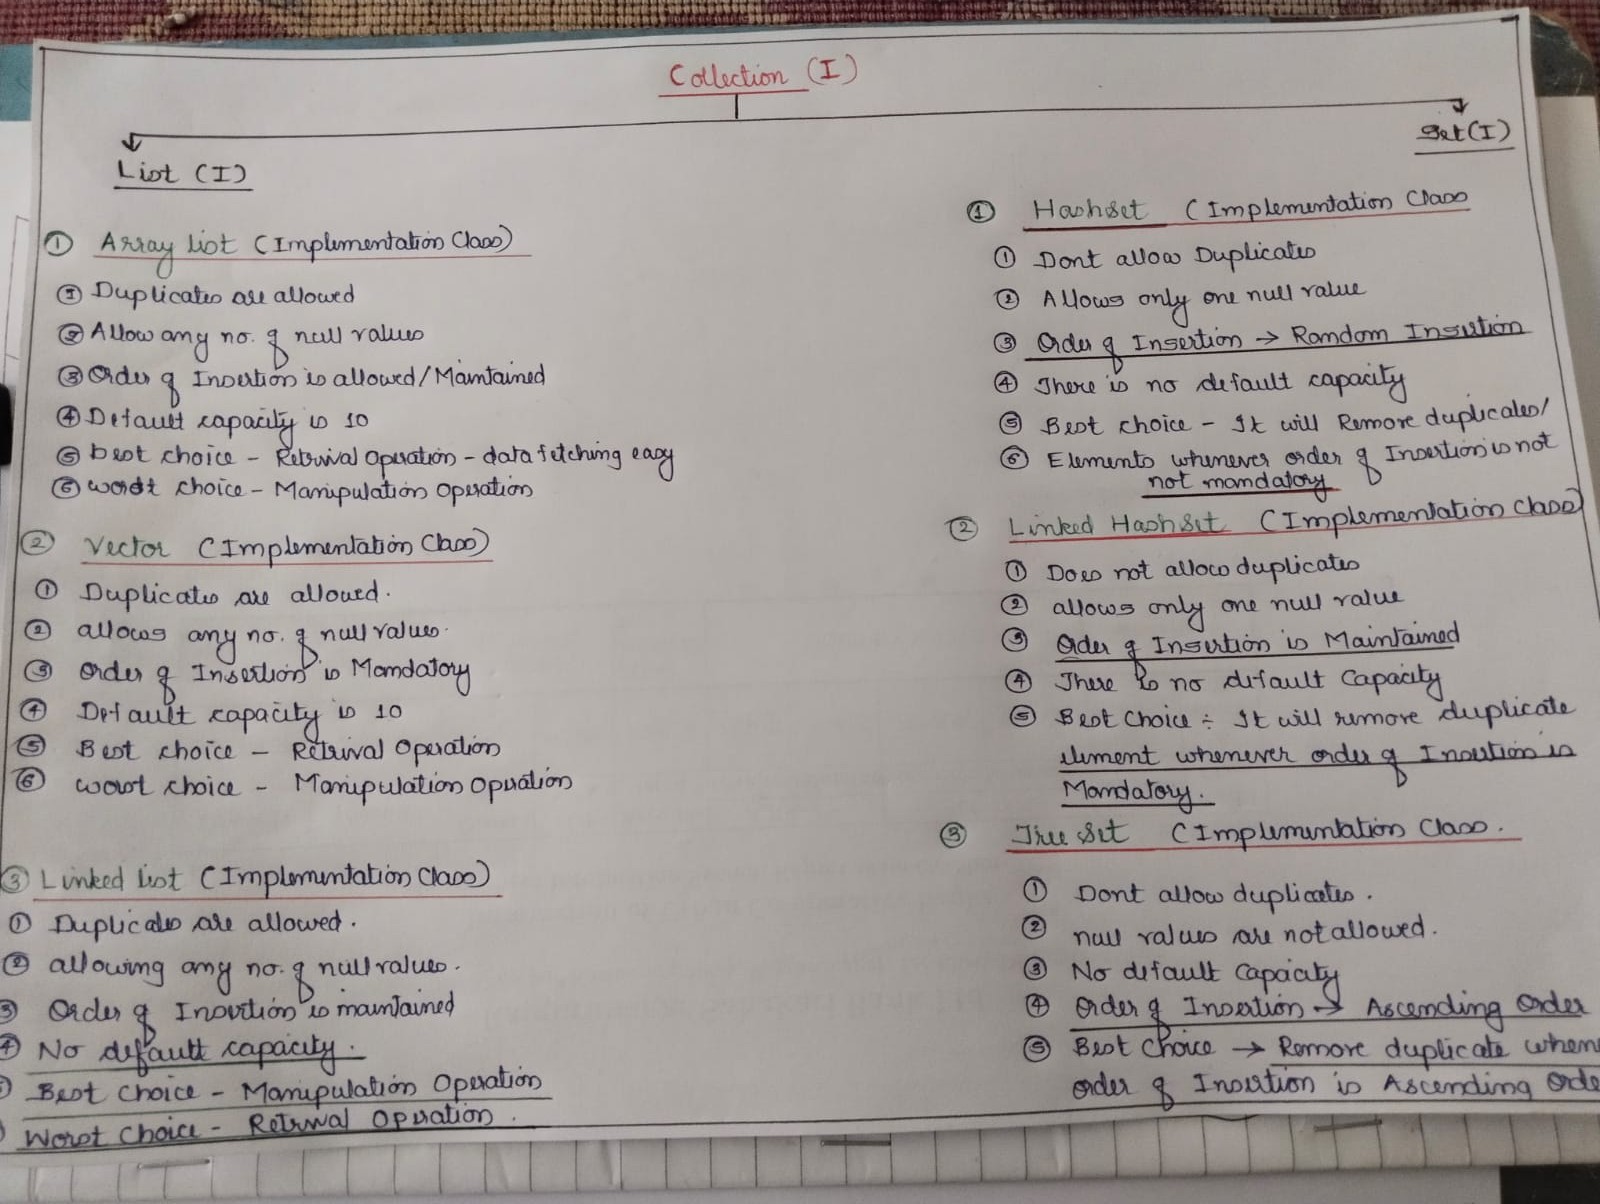 Collection (I)
List (I)
① Array list (Implementation Class)
① Duplicates are allowed
② Allow any no. of null values
③ Order of Insertion is allowed/Maintained
④ Default capacity is 10
⑤ best choice - Retrival Operation - data fetching easy
⑥ worst choice - Manipulation Operation
② Vector (Implementation Class)
① Duplicates are allowed.
② allows any no. of null values.
③ Order of Insertion is Mandatory
④ Default capacity is 10
⑤ Best choice - Retrival Operation
⑥ worst choice - Manipulation Operation
③ Linked list (Implementation Class)
① Duplicates are allowed.
② allowing any no. of null values.
③ Order of Insertion is maintained
④ No default capacity.
Best choice - Manipulation Operation
Worst Choice - Retrival Operation.
Set (I)
① Hashset (Implementation Class
① Dont allow Duplicates
② Allows only one null value
③ Order of Insertion → Random Insertion
④ There is no default capacity
⑤ Best choice - It will Remove duplicates/
⑥ Elements whenever order of Insertion is not
not mandatory
② Linked Hash Set (Implementation Class)
① Does not allow duplicates
② allows only one null value
③ Order of Insertion is Maintained
④ There is no default Capacity
⑤ Best Choice ÷ It will remove duplicate
element whenever order of Insertion is
Mandatory.
③ Tree Set (Implementation Class.
① Dont allow duplicates.
② null values are not allowed.
③ No default Capacity
④ Order of Insertion → Ascending Order
⑤ Best Choice → Remove duplicate when
order of Insertion is Ascending Orde